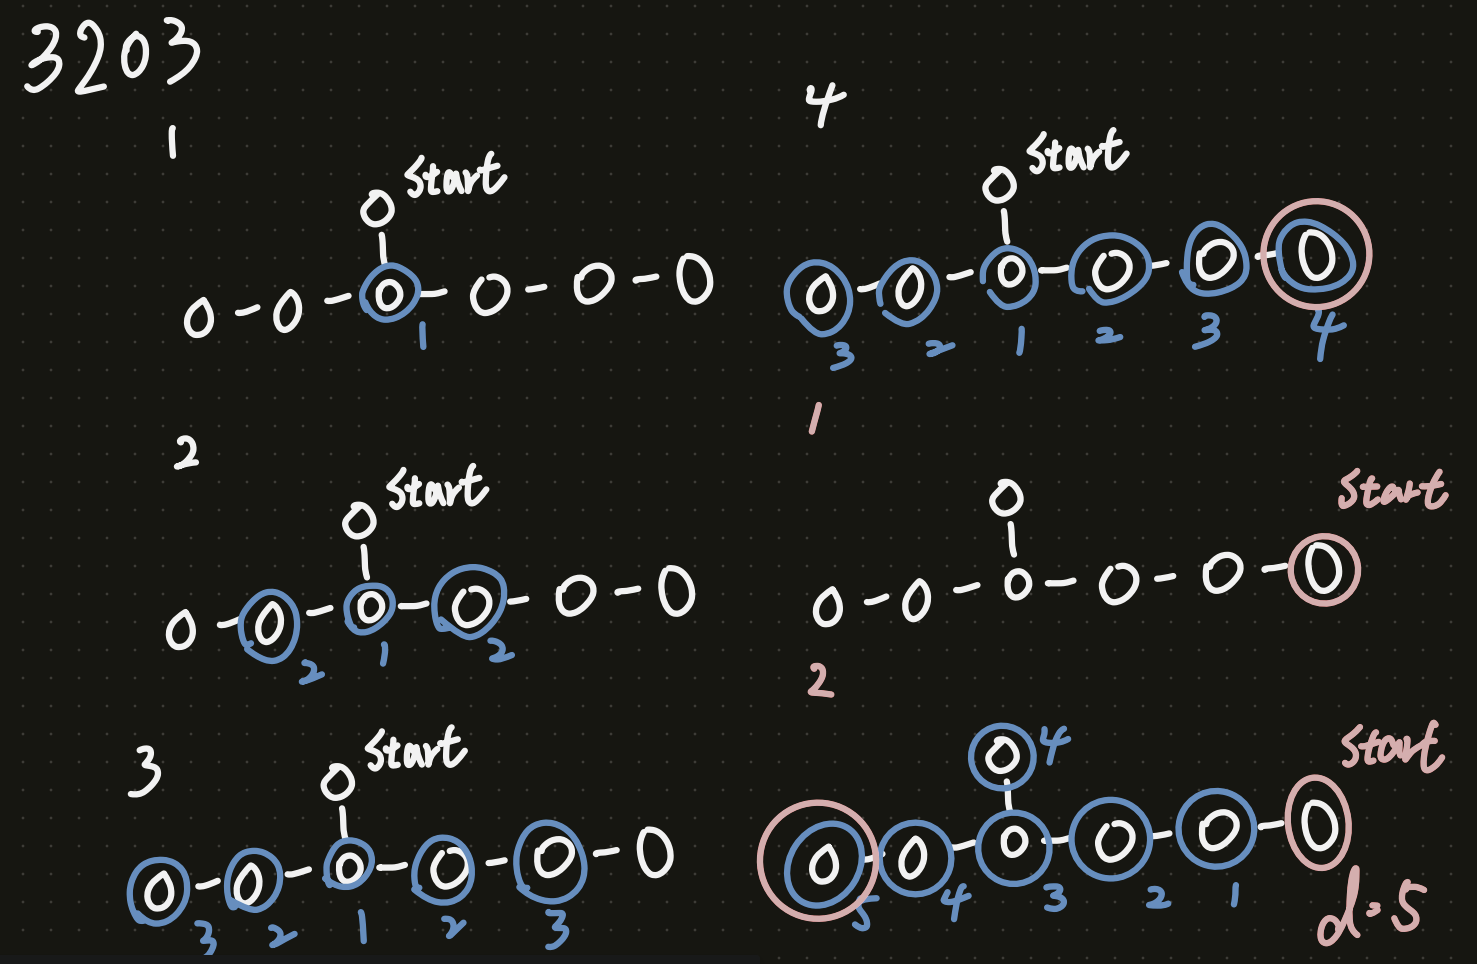 3203
1
Start
1
2
Start
2 1 2
3
Start
3 2 1 2 3
4
Start
3 2 1 2 3 4
1
Start
2
Start
4
5 4 3 2 1
d=5